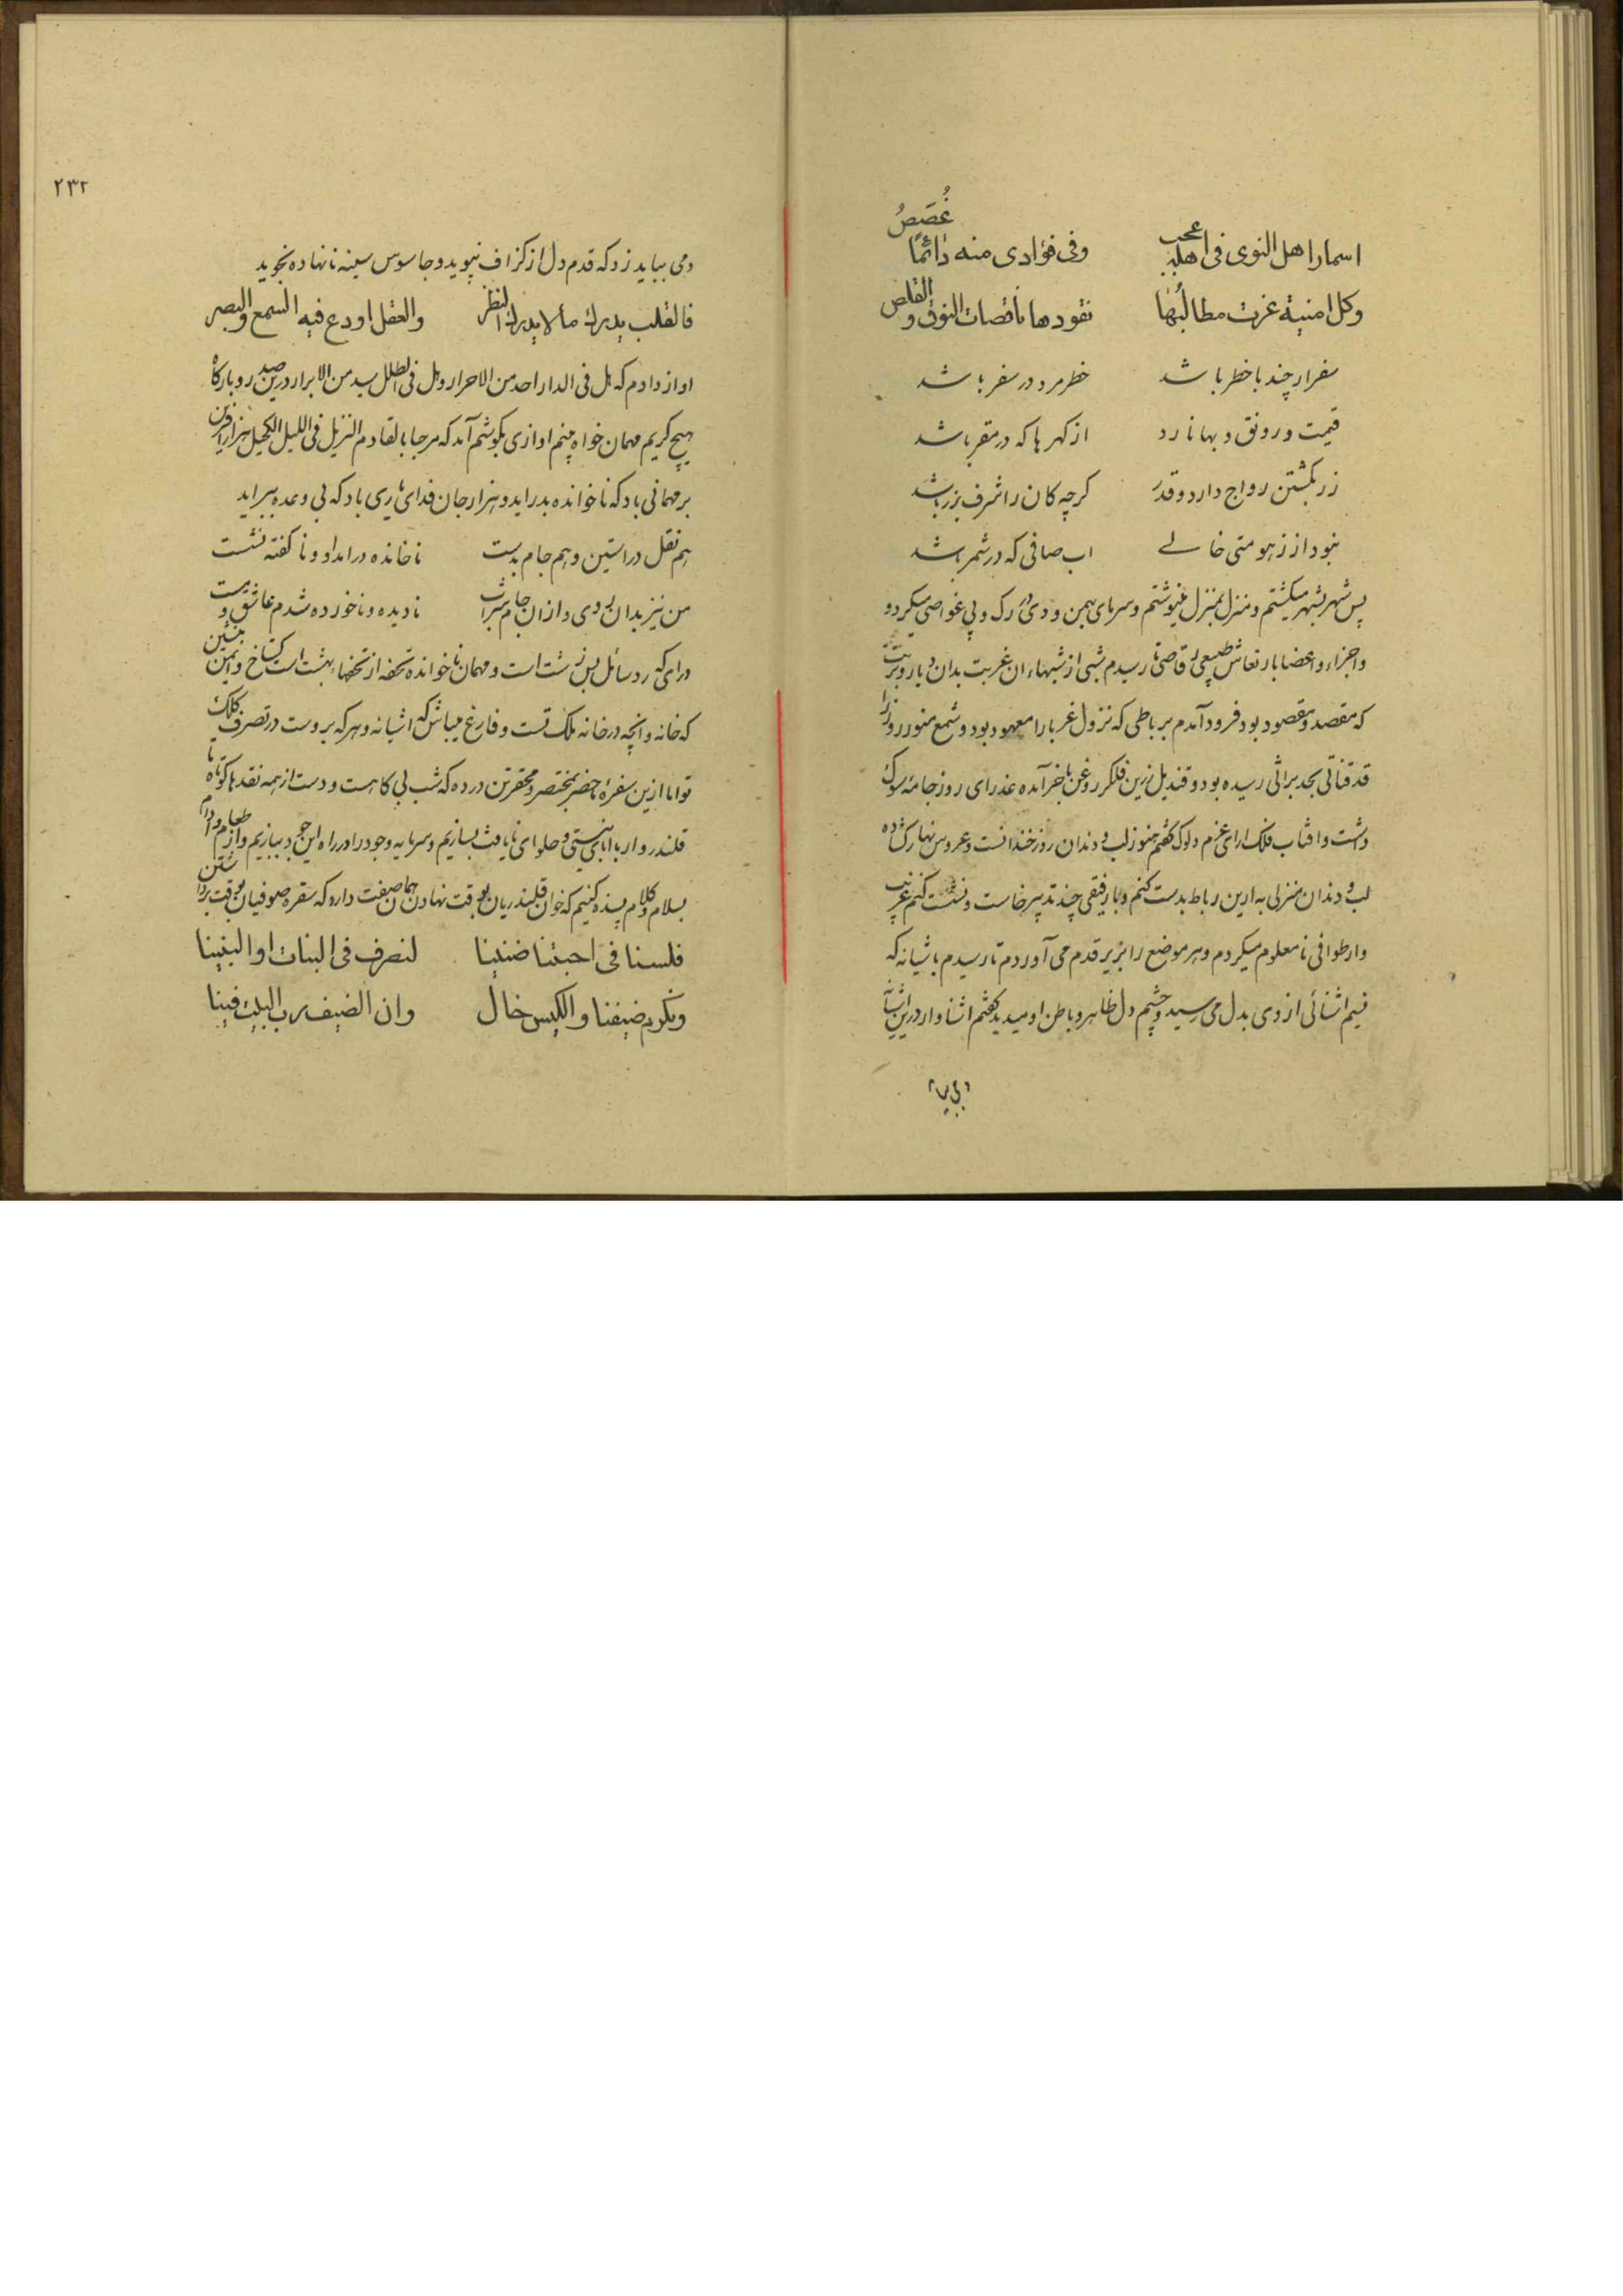 اسمار اهل النوی فی اهلها عجب وفی فؤادی منه دائمًا غُصَصُ
وکل امنیة عزت مطالبُها نقودها ناقصات النوق والقلص
سفر ارچند با خطر باشد خطر مرد در سفر باشد
قیمت و رونق و بها نارد از کهرها که در مقر باشد
زر بکشتن رواج دارد و قدر کرچه کان را شرف بزر باشد
نبود از زهومتی خالے اب صافی که در شمر باشد
پس شهر بشهر میکشتم و منزل بمنزل مینوشتم و سرمای بهمن و دی در رک و پی غواصی میکرد و
واجزاء و اعضا بارتعاش طبیعی رقاصی تا رسیدم شبی از شبهاء ان غربت بدان دیار و تربت
که مقصد و مقصود بود فرود آمدم بر باطی که نزول غربا را معهود بود و شمع منور روز را
قد قناتی بحد براثی رسیده بود و قندیل زرین فلک را روغن باخر آمده عذرای روز جامهٔ سوک
داشت و افتاب فلک ارای عزم دلوک کفتم هنوز لب و دندان روز خندانست و عروس نهار کشاده
لب و دندان منزلی به ازین رباط بدست کنم و با رفیقی چند تدبیر خاست و نشست کنم غریب
وار طوافی نامعلوم میکردم و هر موضع را بزیر قدم می آوردم تا رسیدم باشیانه که
نسیم اشنائی از وی بدل می رسید و چشم دل ظاهر و باطن او میدید کفتم اشناوار درین اشیانه
۲۳۲
دمی بباید زد که قدم دل از کزاف نپوید و جاسوس سینه نانهاده نجوید
فالقلب یدرك مالا یدرك النظر والعقل اودع فیه السمع والبصر
اواز دادم که هل فی الدار احد من الاحرار و هل فی الطلل سید من الابرار درین صدر و بارکاه
هیچ کریم مهمان خواه بینم اوازی بکوشم آمد که مرحبا بالقادم النزیل فی اللیل الکحیل هزار افرین
بر مهمانی باد که ناخوانده بدر اید و هزار جان فدای یاری باد که بی وعده ببر اید
هم نقل در استین و هم جام بدست ناخانده در امد او و ناکفته نشست
من نیز بدان بوی و ازان جام شراب نادیده و ناخورده شدم عاشق و مست
درای که رد سائل بس زشت است و مهمان ناخوانده تحفه از تحفهاء بهشت است کستاخ و ایمن بنشین
که خانه و انچه در خانه ملک تست و فارغ میباش که اشیانه و هر که بروست در تصرف کلک
تو اما ازین سفرهٔ ماحضر بمختصر و محقر تن درده که شب بی کاهست و دست از همه نقدها کوتاه تا
قلندروار با ابای نیستی و حلوای نایافت بسازیم و سرمایه وجود را در راه این جود ببازیم و از طعام و ادام
بسلام و کلام بسنده کنیم که خوان قلندریان بوقت نهادن همان صفت دارد که سفره صوفیان بوقت برداشتن
فلسنا فی احبتنا ضنینا لنصرف فی البنات او البنینا
ونکرم ضیفنا والکیس خال وان الضیف رب البیت فینا